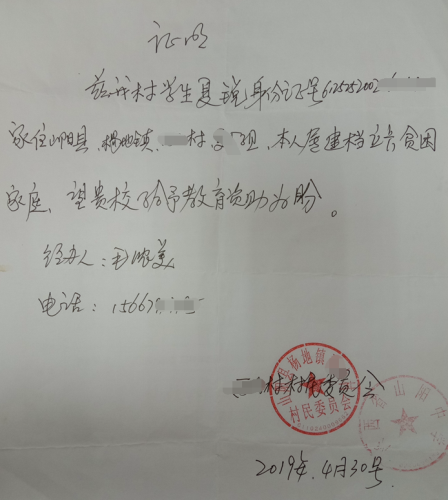 证明
兹我村学生夏锐身份证号6125252002
家住山阳县、杨地镇、村组，本人属建档立卡贫困
家庭、望贵校给予教育资助为盼。
经办人：美
电话：15667
村村民委员会
杨地镇
村民委员会
山阳
2019年.4月30号